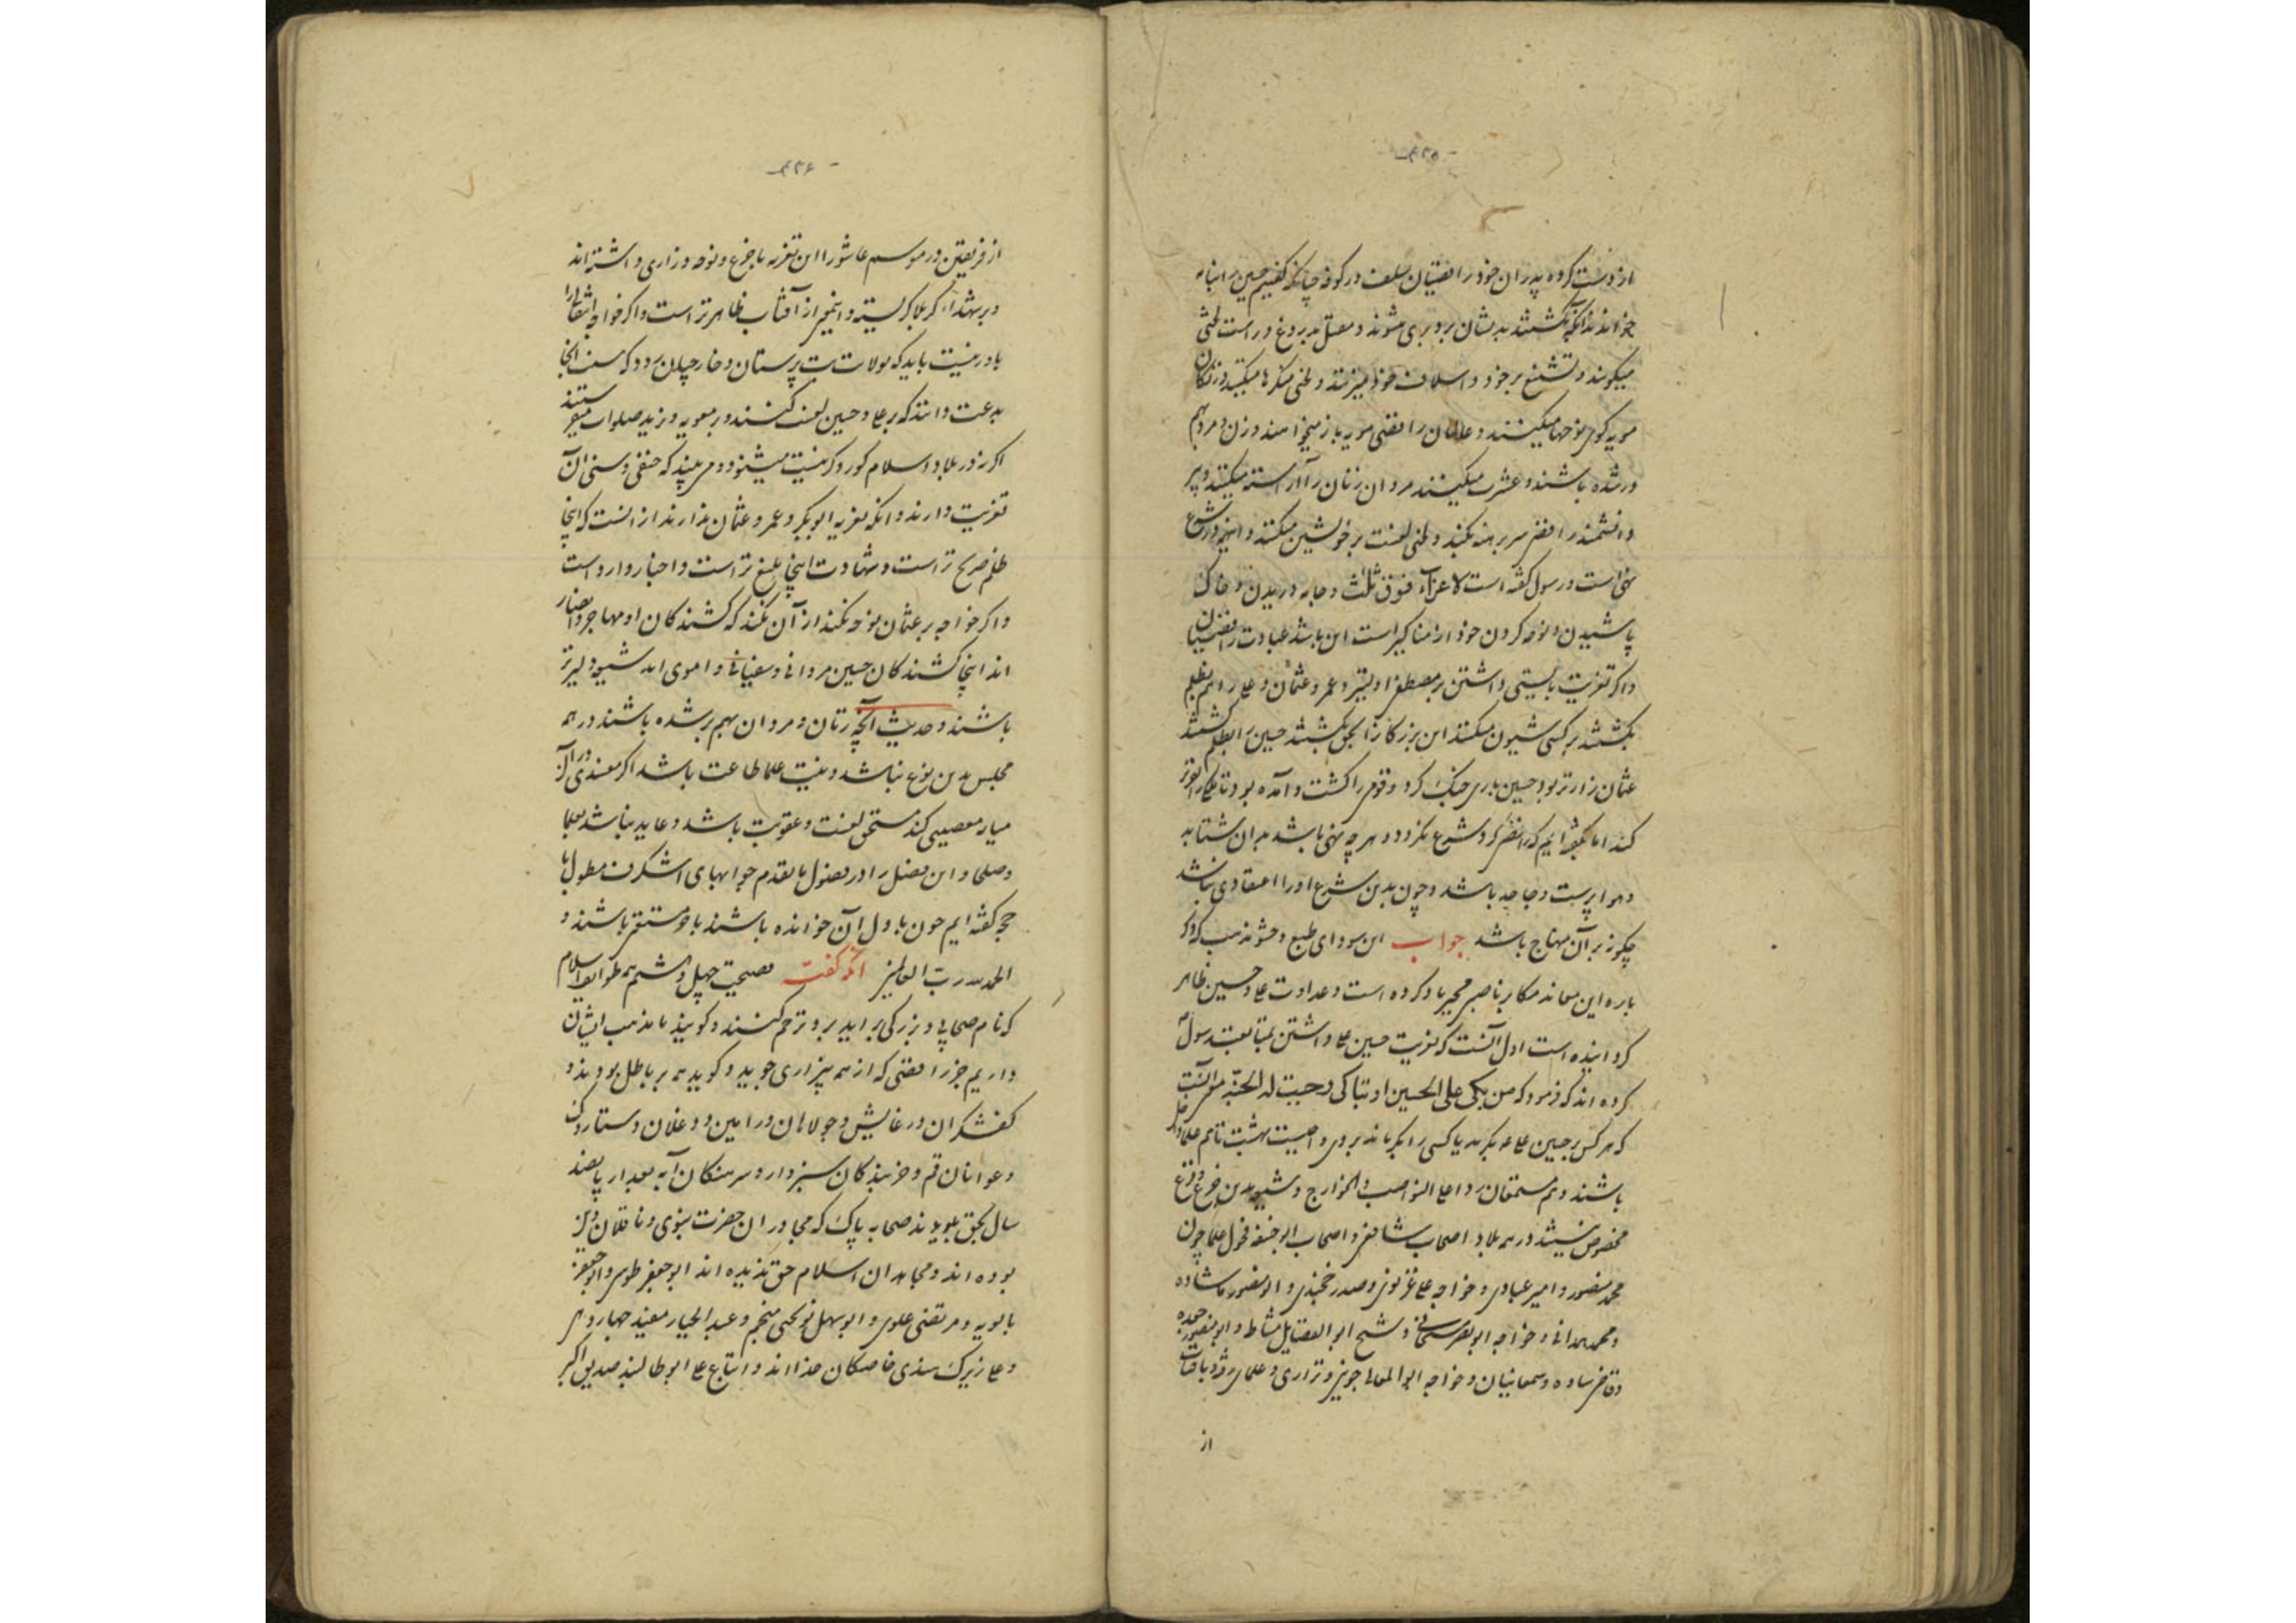 ۴۲۵
از دست کرده پدران خود رافضیان سلف در کوفه چنانکه گفتیم حسین را بنامه
خواندند آنگه بکشتند بدیشان برو بری میشوند و مقتل بدروغ و راست لختی
میگویند و تشنیع بر خود و اسلاف خود میزنند و لختی منکرها میکنند و زنکان
مویه گر نوحها میکنند و عالمان رافضی مویه باز میخوانند و زن و مرد بهم
در شده باشند و عشرت میکنند مردان زنان را آراسته میکنند و پیر
دانشمند رافضی سر برهنه بکند و لختی لعنت بر خویشتن میکند و اینهمه در شرع
نهی است و رسول گفته است لا عزاء فوق ثلث و جامه دریدن و خاک
پاشیدن و نوحه کردن خود از مناکیر است این باشد عبادت رافضیان
و اگر تعزیت بایستی داشتن بر مصطفی اولیتر و عمر و عثمان و علی را هم بظلم
بکشتند بر کسی شیون میکنند این بزرگان را بحق بکشتند حسین را بظلم کشتند
عثمان زارتر بود حسین باری جنگ کرد و قومی را کشت و آمده بود تا ملک را
کند اما بگفته‌ایم که رافضی گرد شرع نگردد و هر چه نهی باشد بدان شتابد
و هوا پرست و جاحد باشد و چون بدین شرع او را اعتقادی نباشد
چگونه بر آن منهاج باشد جواب این سودای طبع و حشو مذهب که در
باره این معاند مکابر ناصبی مجبر یاد کرده است و عداوت علی و حسین ظاهر
گردانیده است اول آنست که تعزیت حسین علی داشتن بمتابعت رسول
کرده‌اند که فرمود که من بکی علی الحسین او تباکی وجبت له الجنة
که هر کس بر حسین علی بگرید یا کسی را بگریاند بر وی واجبست بهشت تا هم
باشند و هم مستمعان ردا علی النواصب و الخوارج و شیعه بدین جزع و فزع
مخصوص نیستند در همه بلاد اصحاب شافعی و اصحاب ابو حنیفه فحول علما چون
محمد منصور و امیر عبادی و خواجه علی غزنوی و صدر خجندی و ابو منصور ماشاده
و محمد همدانی و خواجه ابو نصر هسنجانی و شیخ ابو الفضایل مشاط و ابو منصور حفده
و قاضی ساوه و سمعانیان و خواجه ابو المعالی جوینی و نزاری و علمای رفته و باقیان
از
۴۲۶
از فریقین در موسم عاشورا این تعزیه با جزع و نوحه و زاری داشته‌اند
و بر شهداء کربلا گریسته و این معنی از آفتاب ظاهرتر است و اگر خواجه انتقالی را
باور نیست باید که بولایت بت پرستان و خارجیان رود که سنت آنجا
بدعت دانند که بر علی و حسین لعنت کنند و بر معویه و یزید صلوات میفرستند
اگر نه در بلاد اسلام کور و کر نیست میشنود و می‌بیند که حنفی و سنی این
تعزیت دارند و آنکه تعزیه ابوبکر و عمر و عثمان ندارند از آنست که اینجا
ظلم صریح‌تر است و شهادت اینجا بلیغ‌تر است و اخبار وارد است
و اگر خواجه بر عثمان نوحه نکند از آن نکند که کشندگان او مهاجر و انصار
اند اینجا کشندگان حسین مروانی و سفیانی و اموی‌اند شیعه دلیرتر
باشند و حدیث آنچه زنان و مردان بهم بر شده باشند در همه
مجلس بدین نوع نباشد و بنیت علما طاعت باشد اگر مفسدی در آن
میانه معصیتی کند مستحق لعنت و عقوبت باشد و عاید نباشد بعلما
و صلحا و این فصل را در فصول ما تقدم جوابهای اشگرف مطول با
حجه گفته‌ایم چون با دل آن خوانده باشند با خود مستقر باشند و
الحمد لله رب العالمین آنگه گفته فضیحت چهل و ششم همه طوایف اسلام
که نام صحابی و بزرگی برآید برو ترحم کنند و گویند ما مذهب ایشان
داریم جز رافضی که از همه بیزاری جوید و گوید همه بر باطل بودند و
کفشگران در غایش و جولاهان ورامین و دوغلان دستار
و عوانان قم و خربندگان سبزوار و سرهنگان آبه بعد از پانصد
سال بحق بدیدند صحابه پاک که مجاوران حضرت نبوی و ناقلان دین
بوده‌اند و مجاهدان اسلام حق ندیده‌اند ابو جعفر طوسی و ابو جعفر
بابویه و مرتضی علوی و ابو سهل نوبختی منجم و عبد الجبار مفید
و علی زیرک سندی خاصگان خدااند و اتباع علی ابو طالبند صدیق اکبر